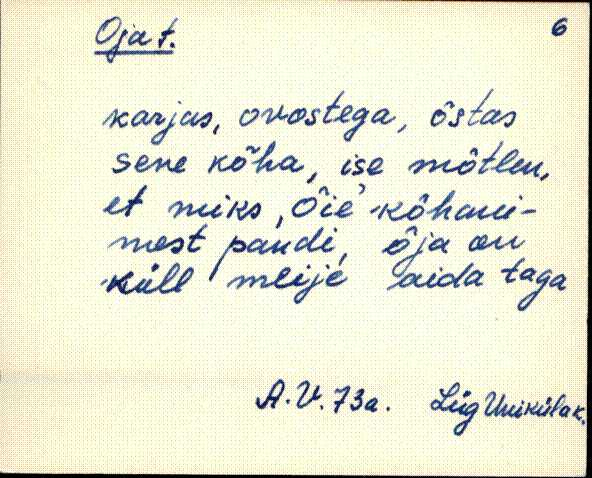 Oja t.
6
karjas, ovostega, õstas
sene kõha, ise mõtlen,
et miks, õie kõhani-
mest pandi, õja on
küll meije aida taga
A.V. 73a. Lüg Unikülak.